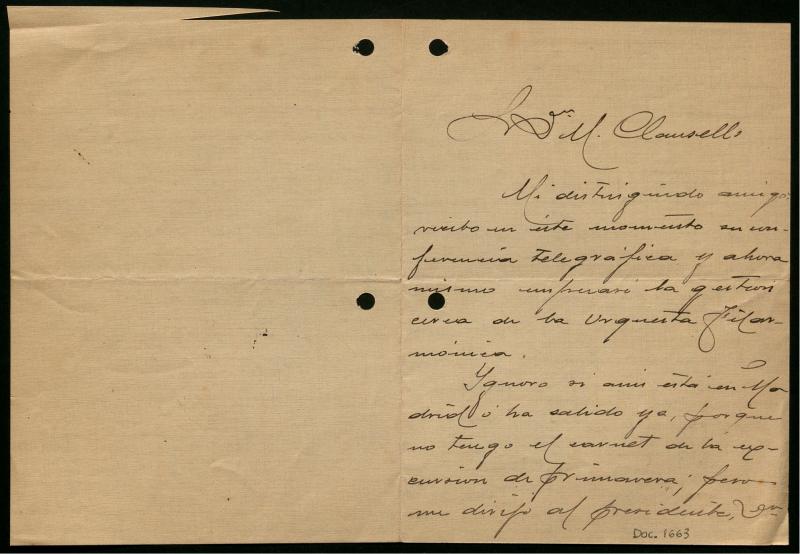 Sr. Dn. M. Clausells
Mi distinguido amigo:
recibo en este momento su con-
ferencia telegráfica y ahora
mismo empezaré la gestion
cerca de la Orquesta Filar-
mónica.
Ygnoro si aun está en Ma
drid ó ha salido ya, porque
no tengo el carnet de la ex-
cursion de primavera; pero
me dirijo al presidente, Dn
Doc. 1663